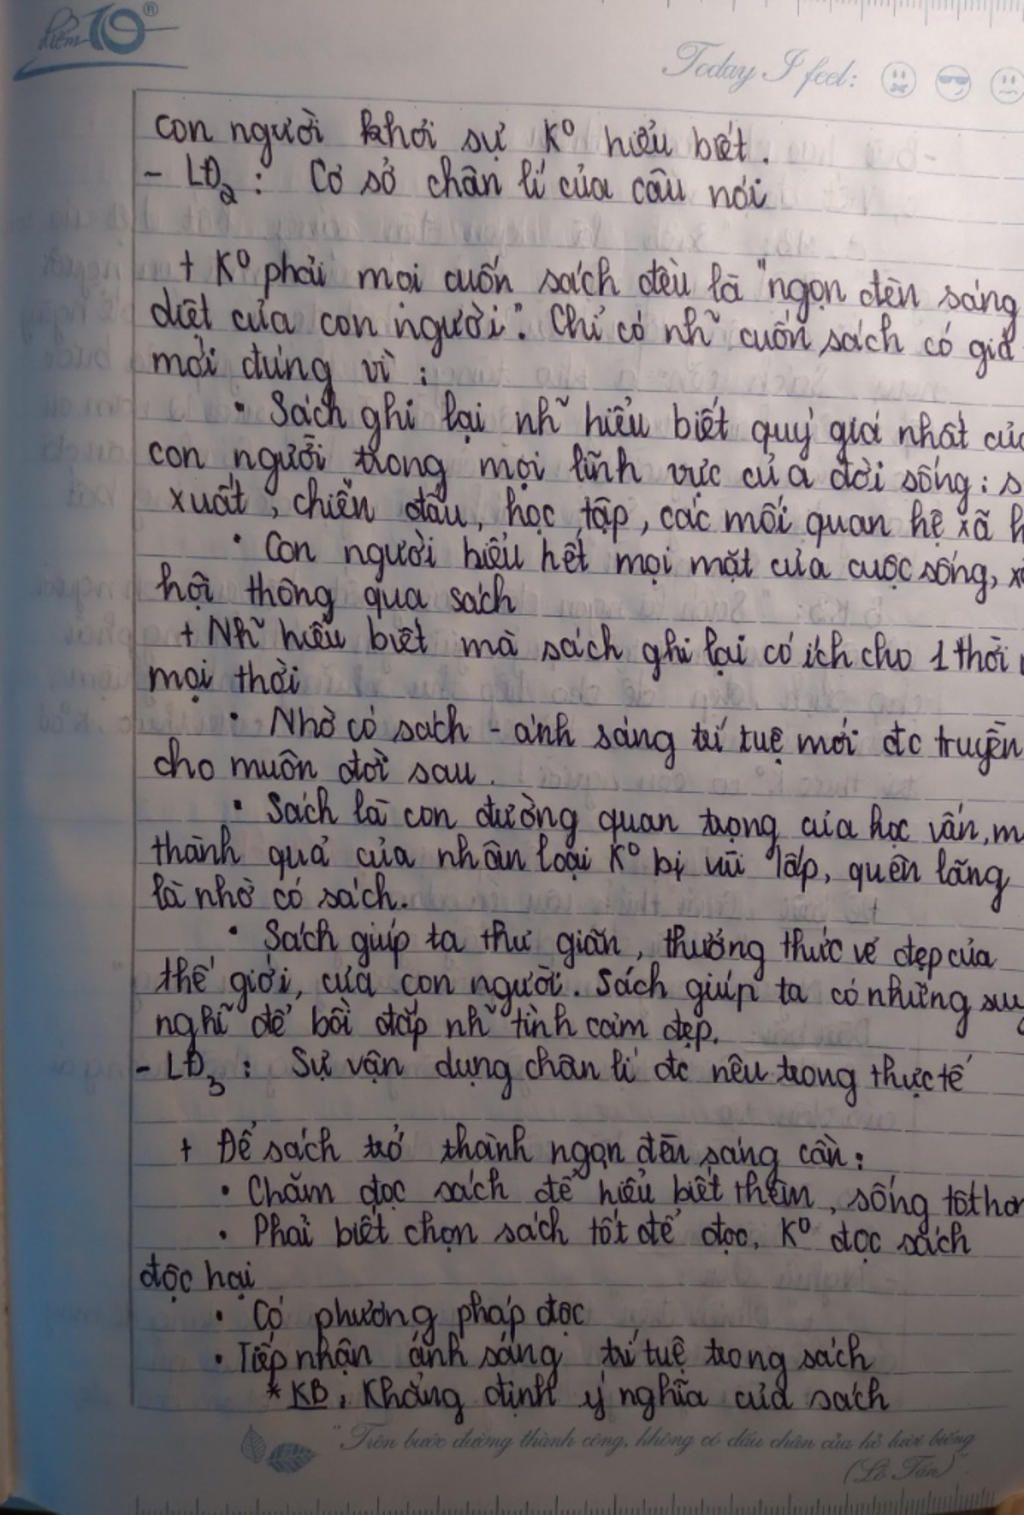 Điểm 10 ®
Today I feel:
con người khỏi sự K⁰ hiểu biết.
- LĐ₂ : Cơ sở chân lí của câu nói
+ K⁰ phải mọi cuốn sách đều là "ngọn đèn sáng
diệt của con người". Chỉ có nh~ cuốn sách có giá
mới đúng vì :
• Sách ghi lại nh~ hiểu biết quý giá nhất của
con người trong mọi lĩnh vực của đời sống : s
xuất, chiến đấu, học tập, các mối quan hệ xã h
• Con người biểu hết mọi mặt của cuộc sống, xã
hội thông qua sách
+ Nh~ hiểu biết mà sách ghi lại có ích cho 1 thời
mọi thời
• Nhờ có sách - ánh sáng trí tuệ mới đc truyền
cho muôn đời sau.
• Sách là con đường quan trọng của học vấn, m
thành quả của nhân loại K⁰ bị vùi lấp, quên lãng
là nhờ có sách.
• Sách giúp ta thư giãn, thưởng thức vẻ đẹp của
thế giới, của con người. Sách giúp ta có những suy
nghĩ để bồi đắp nh~ tình cảm đẹp.
- LĐ₃ : Sự vận dụng chân lí đc nêu trong thực tế
+ Để sách trở thành ngọn đèn sáng cần :
• Chăm đọc sách để hiểu biết thêm, sống tốt hơn
• Phải biết chọn sách tốt để đọc, K⁰ đọc sách
độc hại
• Có phương pháp đọc
• Tiếp nhận ánh sáng trí tuệ trong sách
* KB : Khẳng định ý nghĩa của sách
"Trên bước đường thành công, không có dấu chân của kẻ lười biếng
(Lỗ Tấn)"